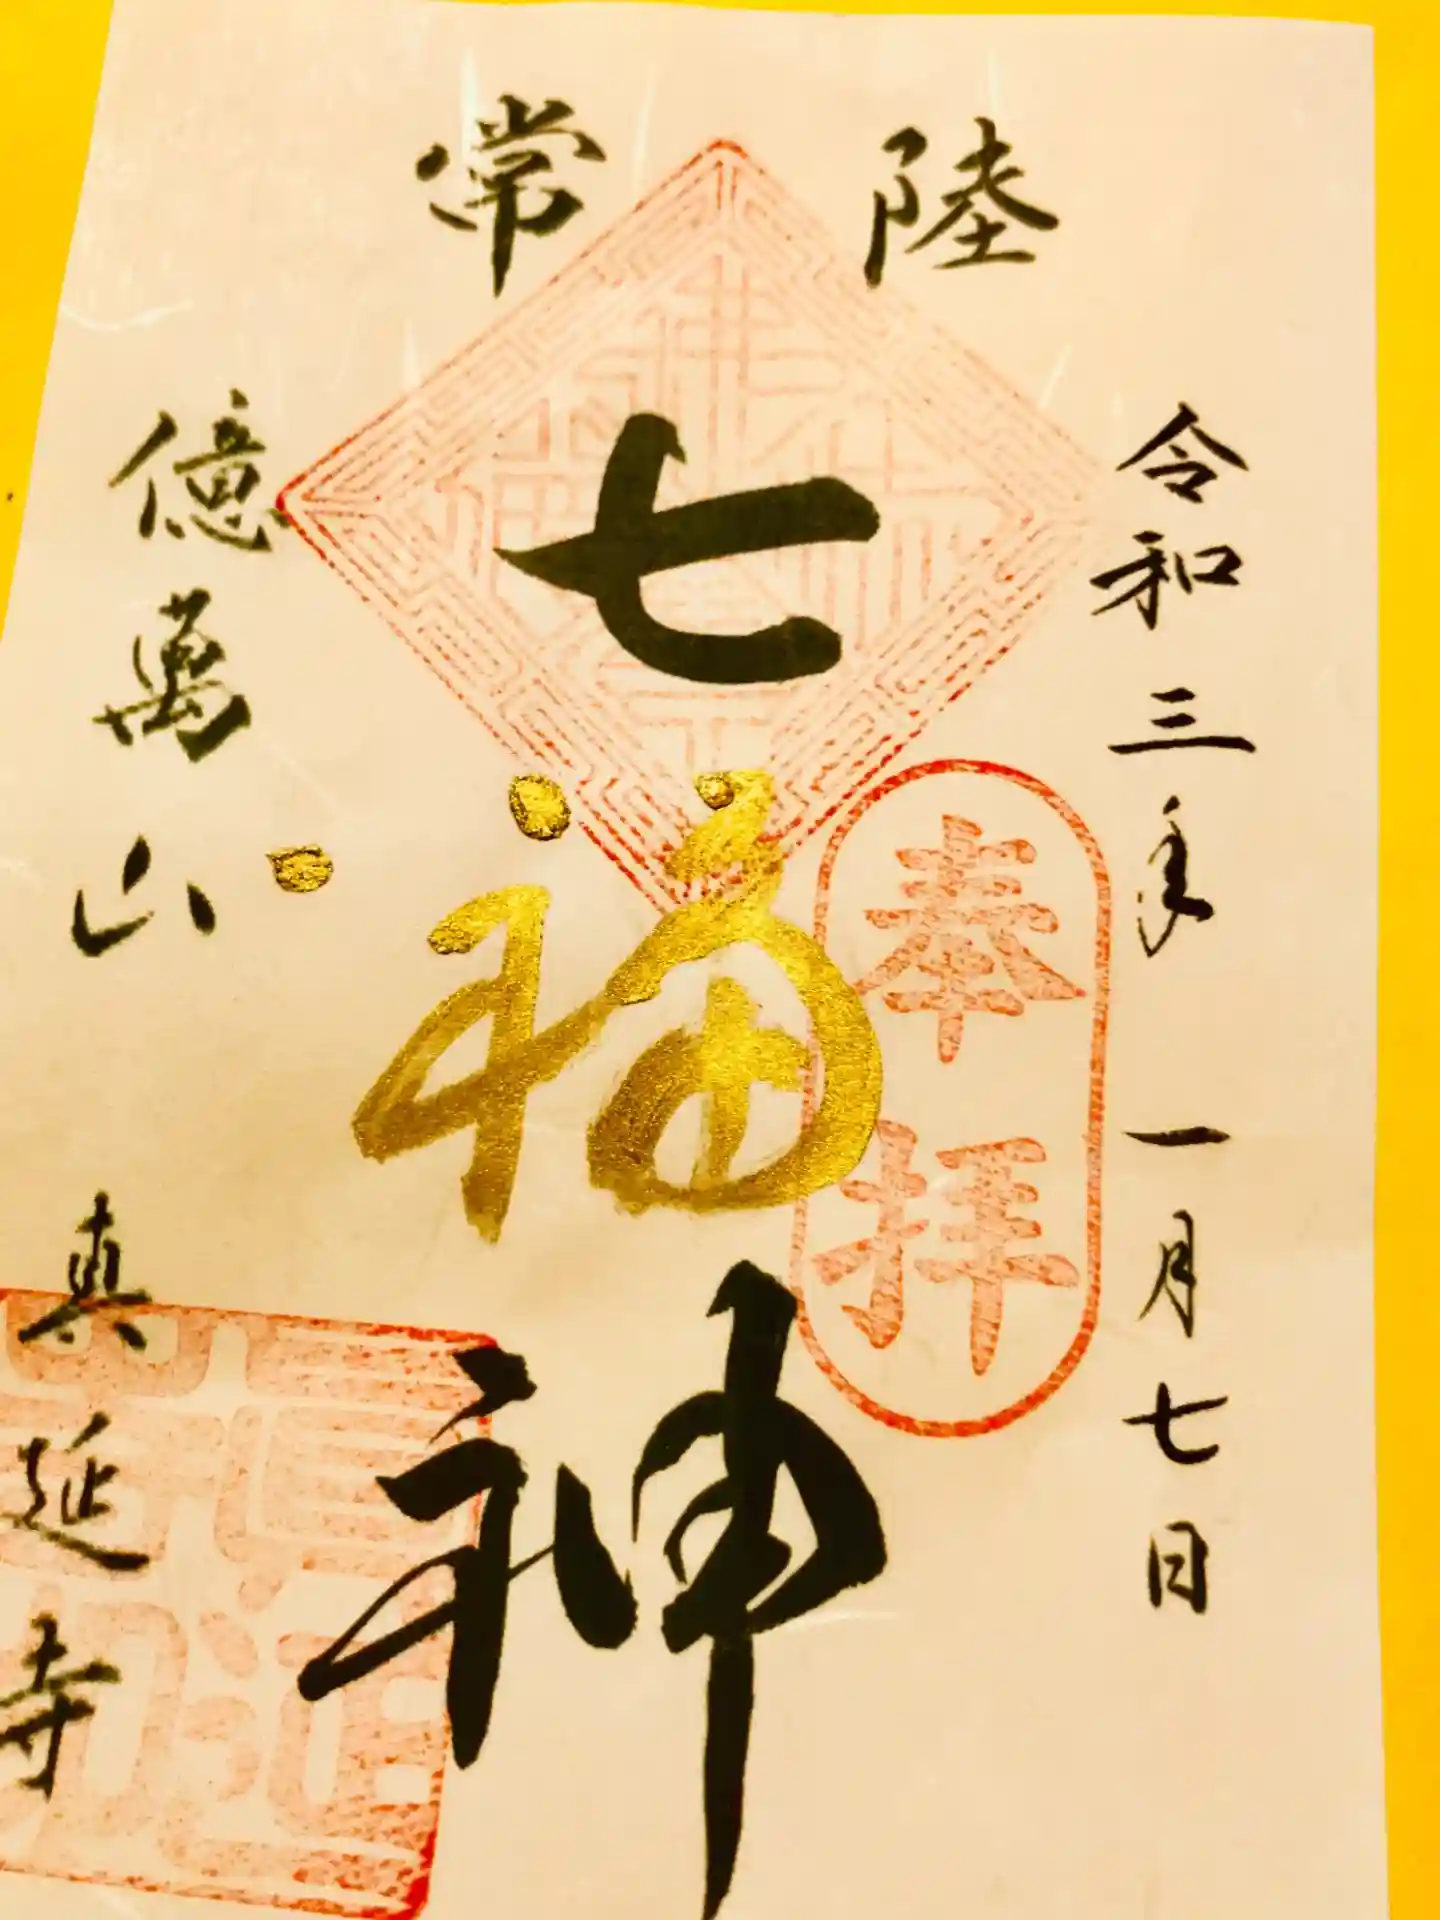 常陸
令和三年 一月七日
奉拝
七福神
億萬山 真延寺